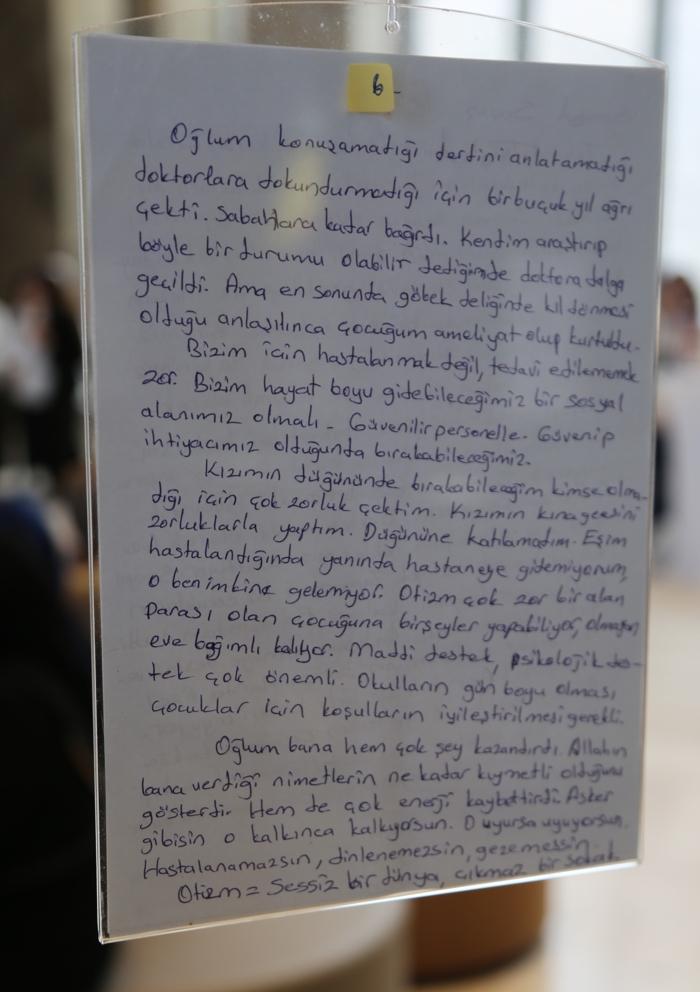 6-
Oğlum konuşamadığı derdini anlatamadığı
doktorlara dokundurmadığı için birbuçuk yıl ağrı
çekti. Sabahlara kadar bağırdı. Kendim araştırıp
böyle bir durumu olabilir dediğimde doktora dalga
geçildi. Ama en sonunda göbek deliğinde kıl dönmesi
olduğu anlaşılınca çocuğum ameliyat olup kurtuldu.
Bizim için hastalanmak değil, tedavi edilememek
zor. Bizim hayat boyu gidebileceğimiz bir sosyal
alanımız olmalı - Güvenilir personelle. Güvenip
ihtiyacımız olduğunda bırakabileceğimiz.
Kızımın düğününde bırakabileceğim kimse olma-
dığı için çok zorluk çektim. Kızımın kına gecesini
zorluklarla yaptım. Düğününe katılamadım. Eşim
hastalandığında yanında hastaneye gidemiyorum,
o benimkine gelemiyor. Otizm çok zor bir alan
Parası olan çocuğuna birşeyler yapabiliyor, olmayan
eve bağımlı kalıyor. Maddi destek, psikolojik des-
tek çok önemli. Okulların gün boyu olması
çocuklar için koşulların iyileştirilmesi gerekli.
Oğlum bana hem çok şey kazandırdı. Allahın
bana verdiği nimetlerin ne kadar kıymetli olduğunu
gösterdi. Hem de çok enerji kaybettirdi. Asker
gibisin o kalkınca kalkıyorsun. O uyursa uyuyorsun.
Hastalanamazsın, dinlenemezsin, gezemessin.
Otizm = Sessiz bir dünya, çıkmaz bir sokak